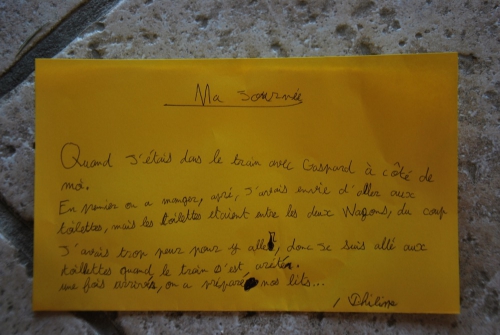 Ma Journée
Quand J'étais dans le train avec Gaspard à côté de
moi.
En premier on a manger, apré, J'avais envie d'aller aux
toilettes, mais les toilettes etaient entre les deux Wagons, du coup
J'avais trop peur pour y aller, donc Je suis allé aux
toillettes quand le train s'est arétér.
une fois arrivés, on a préparé nos lits...
Philine